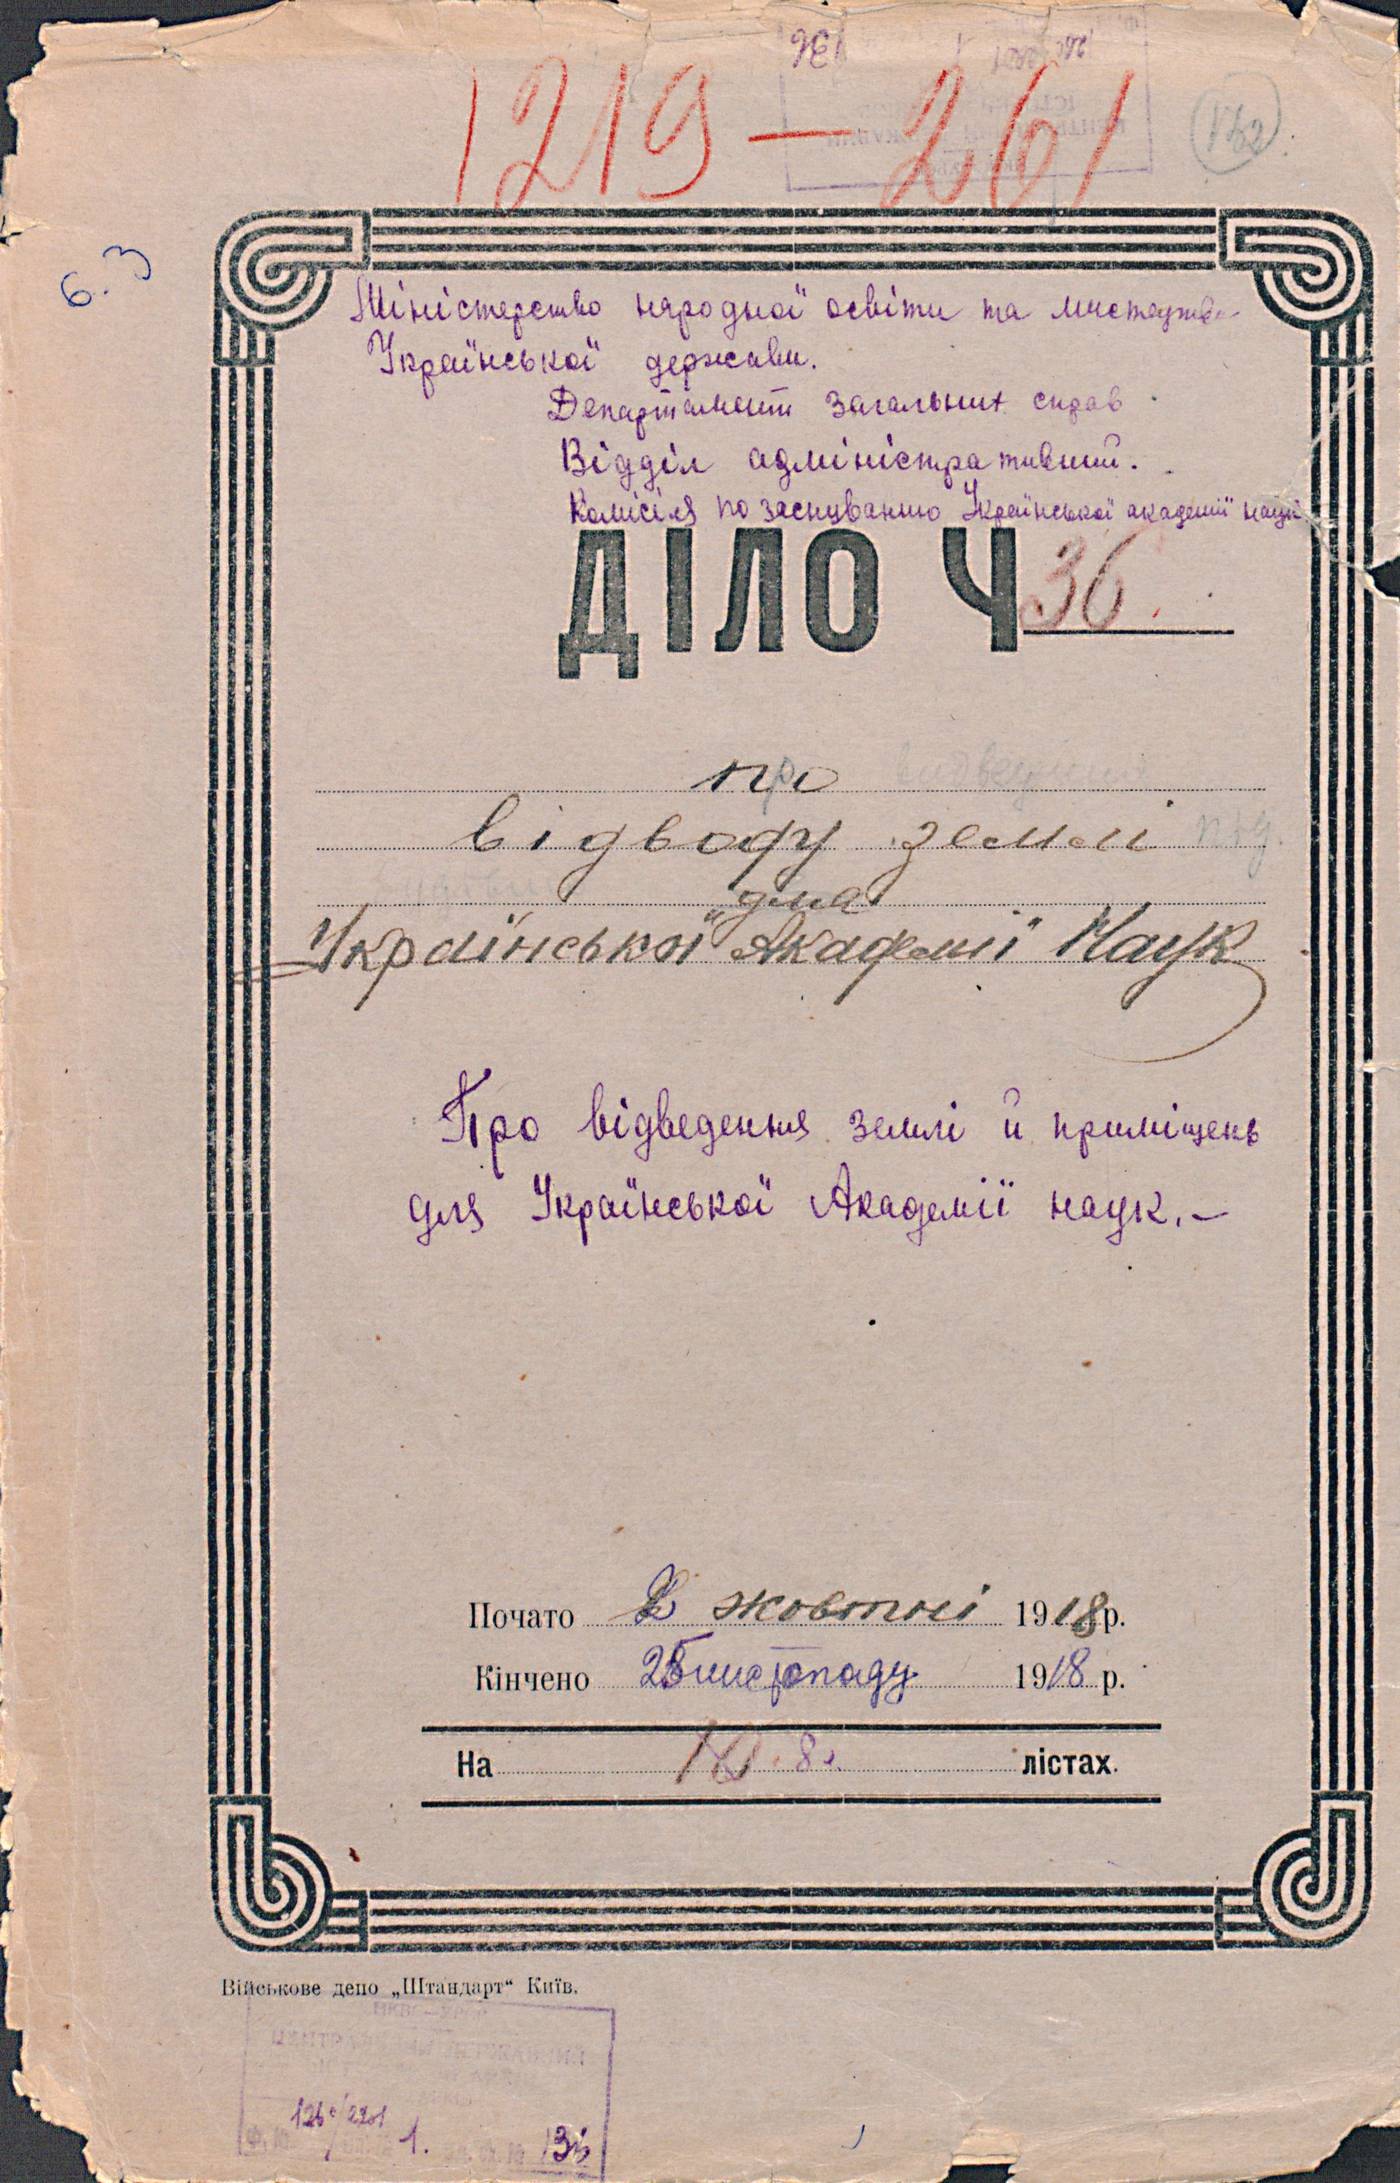 1219 – 261
132
6.3
Міністерство народної освіти та мистецтва
Української держави.
Департамент загальних справ
Відділ адміністративний.
Комісія по заснуванню Української академії наук
ДІЛО Ч 36.
про відведення
відводу землі під
для
Української Академії Наук
Про відведення землі й приміщень
для Української Академії наук.–
Почато 2 жовтня 1918 р.
Кінчено 25 листопаду 1918 р.
На 8 л. лістах.
Військове депо „Штандарт" Київ.
НКВС–УРСР
1.